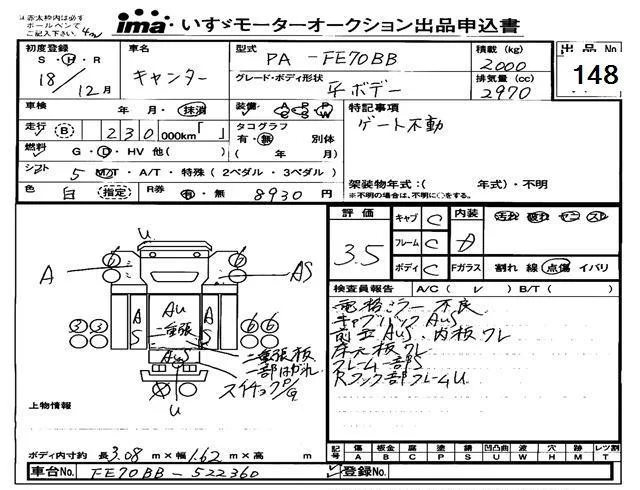 太赤枠内は必ず
ボールペンにて
ご記入下さい。
ima・いすゞモーターオークション出品申込書
初度登録 S・H・R 18/12月
車名 キャンター
型式 PA-FE70BB
グレード・ボディ形状 平ボデー
積載(kg) 2000
排気量(cc) 2970
出品No 148
車検 年・月・抹消
装備
特記事項
ゲート不動
走行 B 230 000km「 」
タコグラフ 有・無 別体
( 年 月)
燃料 G・D・HV 他( )
シフト 5 M/T・A/T・特殊(2ペダル・3ペダル)
架装物年式:( 年式)・不明
※不明の場合は、不明に○をする。
色 白 指定 R券 有・無 8930円
評価 3.5
キャブ C
フレーム C
ボディ C
内装 A
汚れ 破れ ヤニ スレ
Fガラス 割れ 線 点傷 イバリ
検査員報告 A/C( いしざき ) B/T( )
電格ミラー不良
キャブリックAuS
前立AuS、内板ワレ
床元板ワレ
フレーム一部S
Rフック部フレームU
U
6 6
A AS
AU
二重張
A S A S
3 3 6 6
AuS
二重張板
一部はがれ
スイチックP/G
U
上物情報
ボディ内寸約 長3.08m×幅1.62m×高 m
記号 傷A 板金B 腐C 塗P 錆S 凹凸曲U 波W 穴H 跡M レツ割T
車台No FE70BB-522360
登録No.